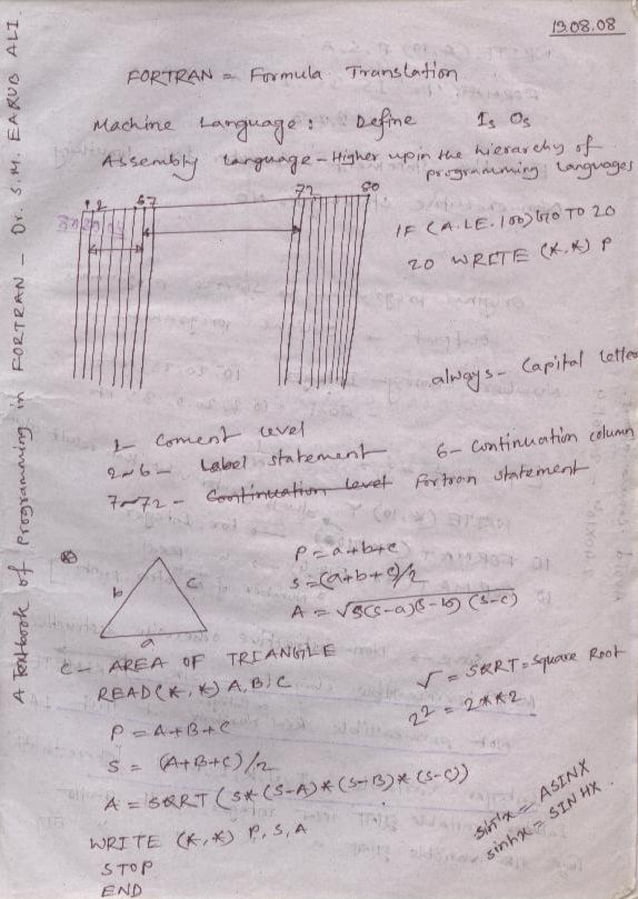 19.08.08
A Textbook of Programming in FORTRAN - Dr. S.M. EARUB ALI.
FORTRAN = Formula Translation
Machine Language : Define 1s 0s
Assembly Language - Higher up in the hierarchy of
programming languages
1 2 6 7 72 80
IF (A.LE.100) GO TO 20
20 WRITE (*,*) P
always - Capital letter
1 Coment level
2~6 - Label statement 6 - Continuation column
7~72 - Continuation level Fortran statement
b c
a
P = a+b+c
S = (a+b+c)/2
A = √S(S-a)(S-b)(S-c)
C - AREA OF TRIANGLE
READ(*,*) A,B,C
√ = SQRT = Square Root
2² = 2**2
P = A+B+C
S = (A+B+C)/2
A = SQRT (S*(S-A)*(S-B)*(S-C))
WRITE (*,*) P, S, A
sin⁻¹x = ASINX
sinhx = SIN HX.
STOP
END